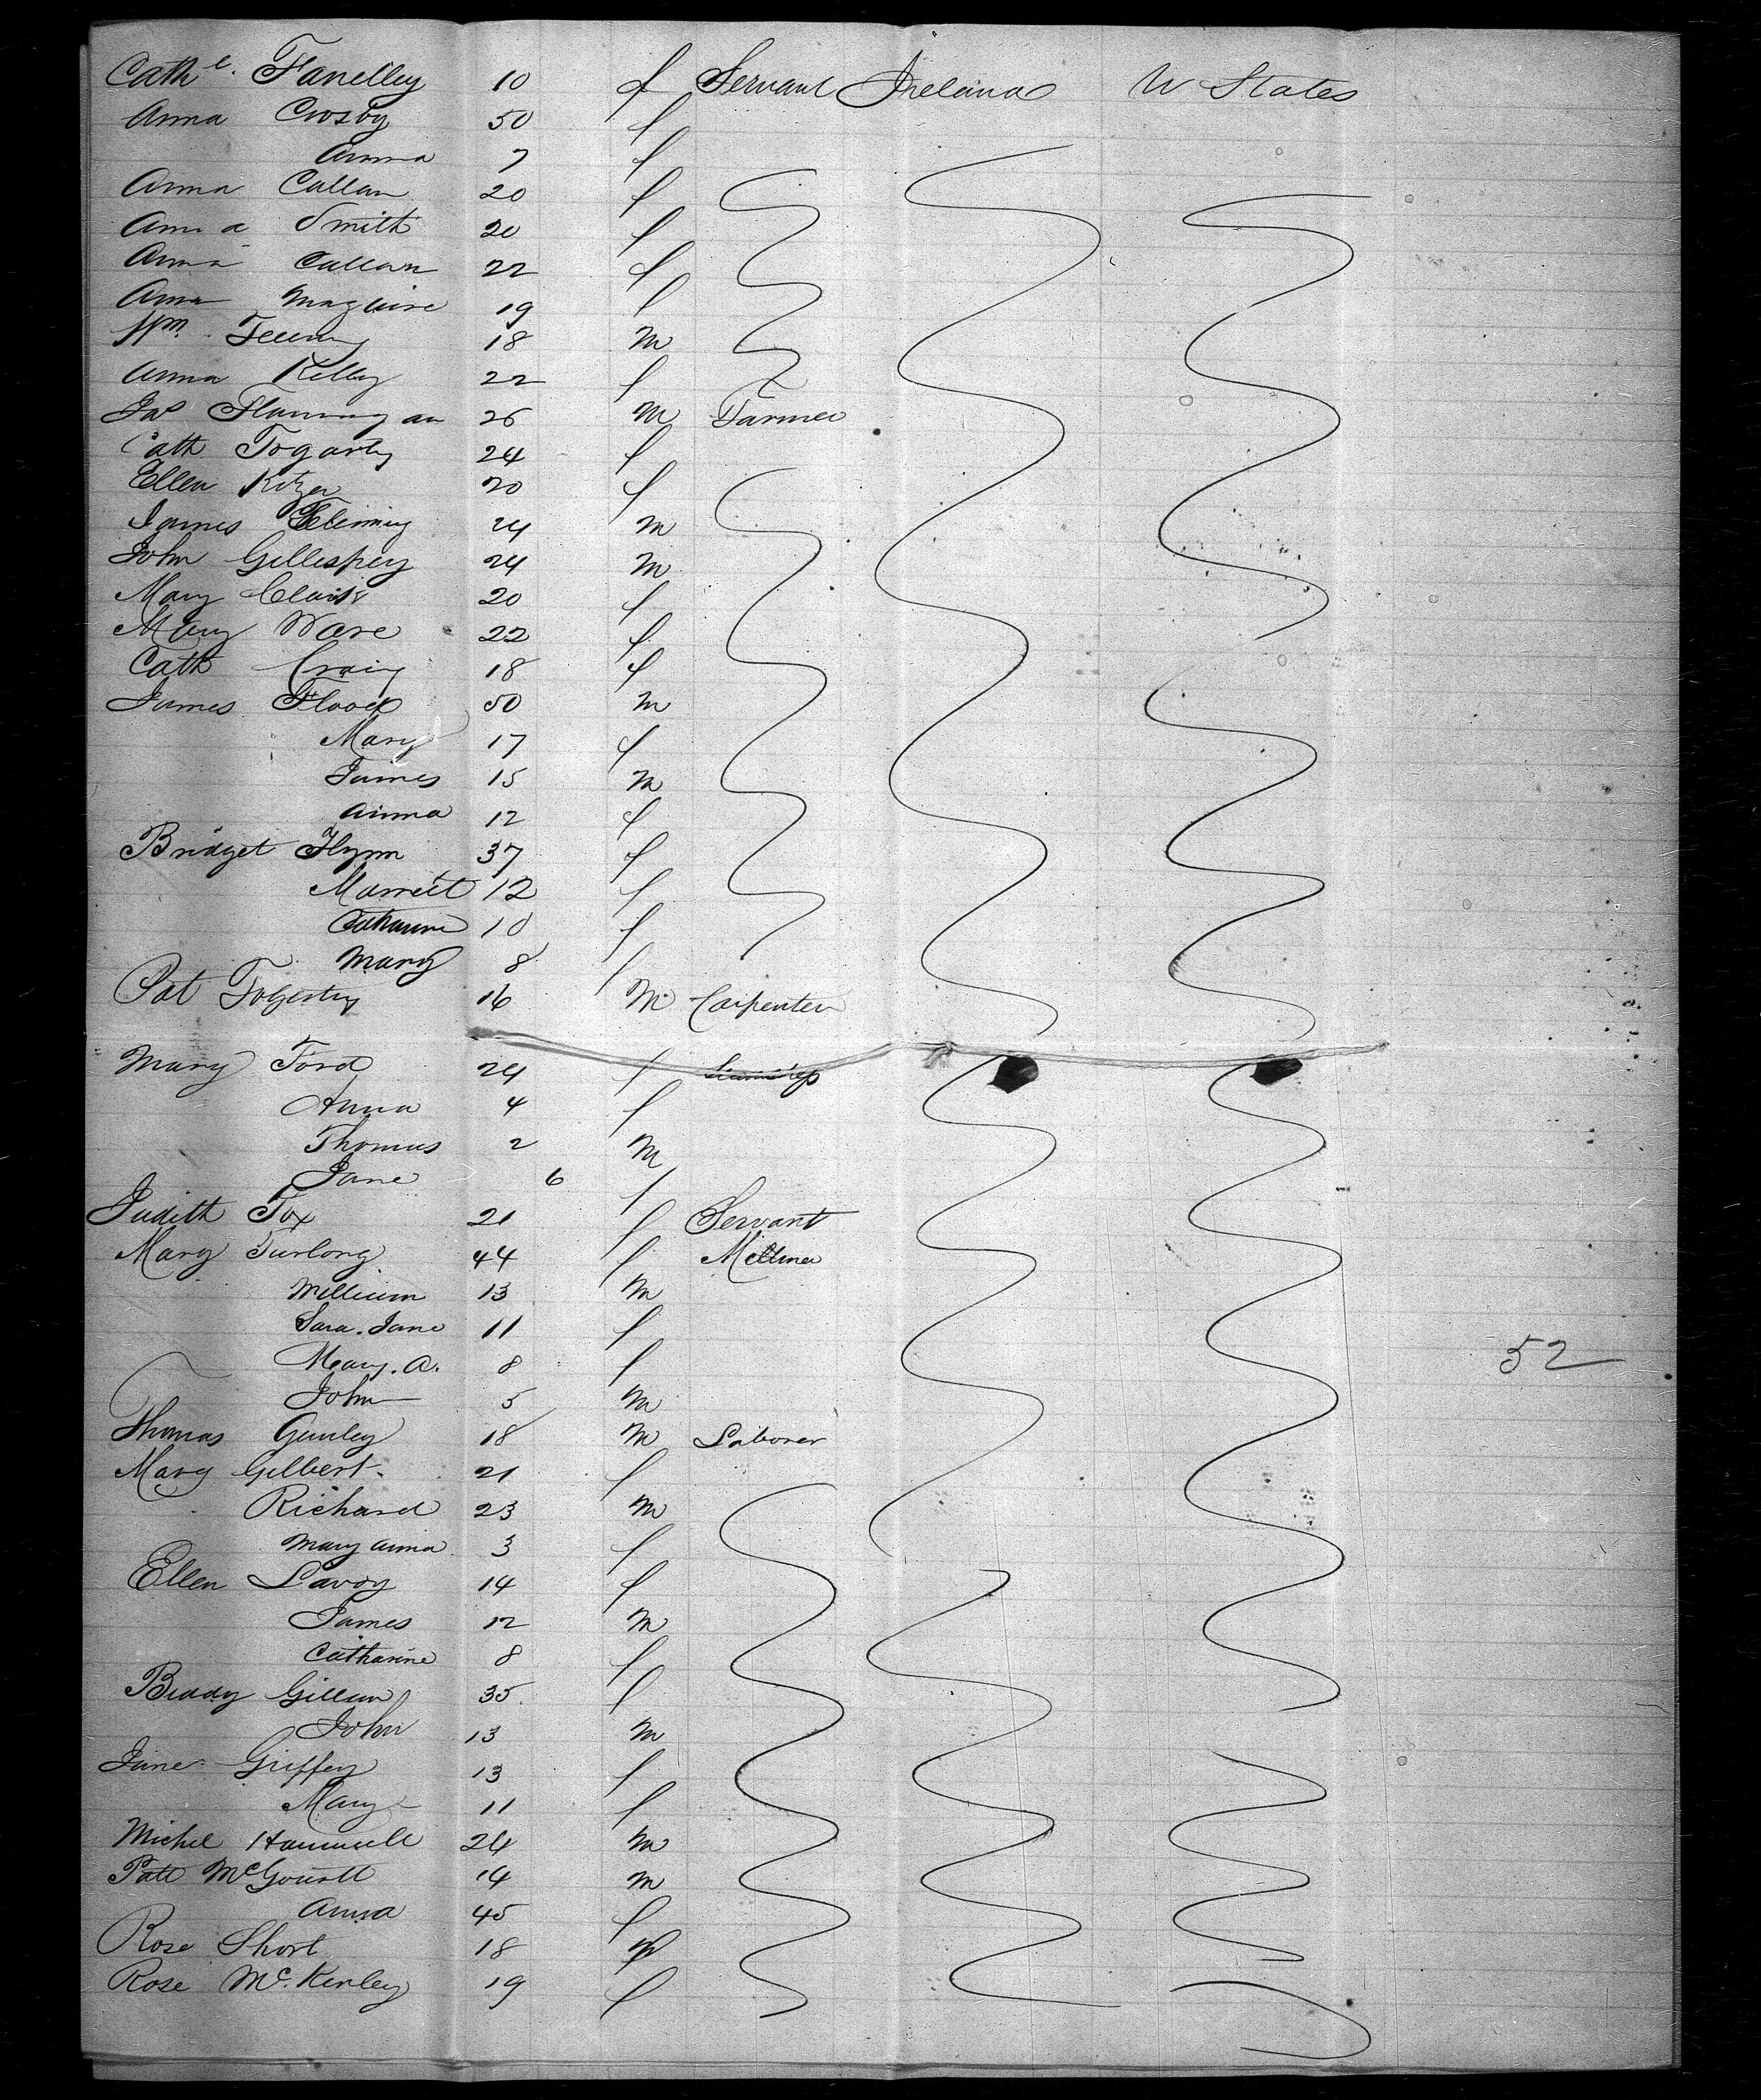 Cath e. Fanelley 10 f Servant Ireland U States
Anna Crosby 50 f
Anna 7 f
Anna Callan 20 f
Anna Smith 20 f
Anna Callan 22 f
Anna Maguire 19 f
Wm. 18 m
Anna Kelly 22 f
Jas Flannigan 26 m Farmer
Cath Fogarty 24 f
Ellen 20 f
James Fleming 24 m
John Gillespey 24 m
Mary Clark 20 f
Mary Ware 22 f
Cath Craig 18 f
James Flood 50 m
Mary 17 f
James 15 m
Anna 12 f
Bridget Flynn 37 f
12 f
Catharine 10 f
Mary 8 f
Pat Fogerty 16 m Carpenter
Mary Ford 24 f
Anna 4 f
Thomas 2 m
Jane 6 f
Judith Fox 21 f Servant
Mary Furlong 44 f
William 13 m
Sara. Jane 11 f
Mary. A. 8 f
52
John 5 m
Thomas 18 m Laborer
Mary Gilbert. 21 f
Richard 23 m
Mary Anna 3 f
Ellen Savoy 14 f
James 12 m
Catharine 8 f
Biddy Gillan 35 f
John 13 m
Jane Griffey 13 f
Mary 11 f
Michel 24 m
Patt 14 m
Anna 45 f
Rose Short 18 f
Rose McKenley 19 f